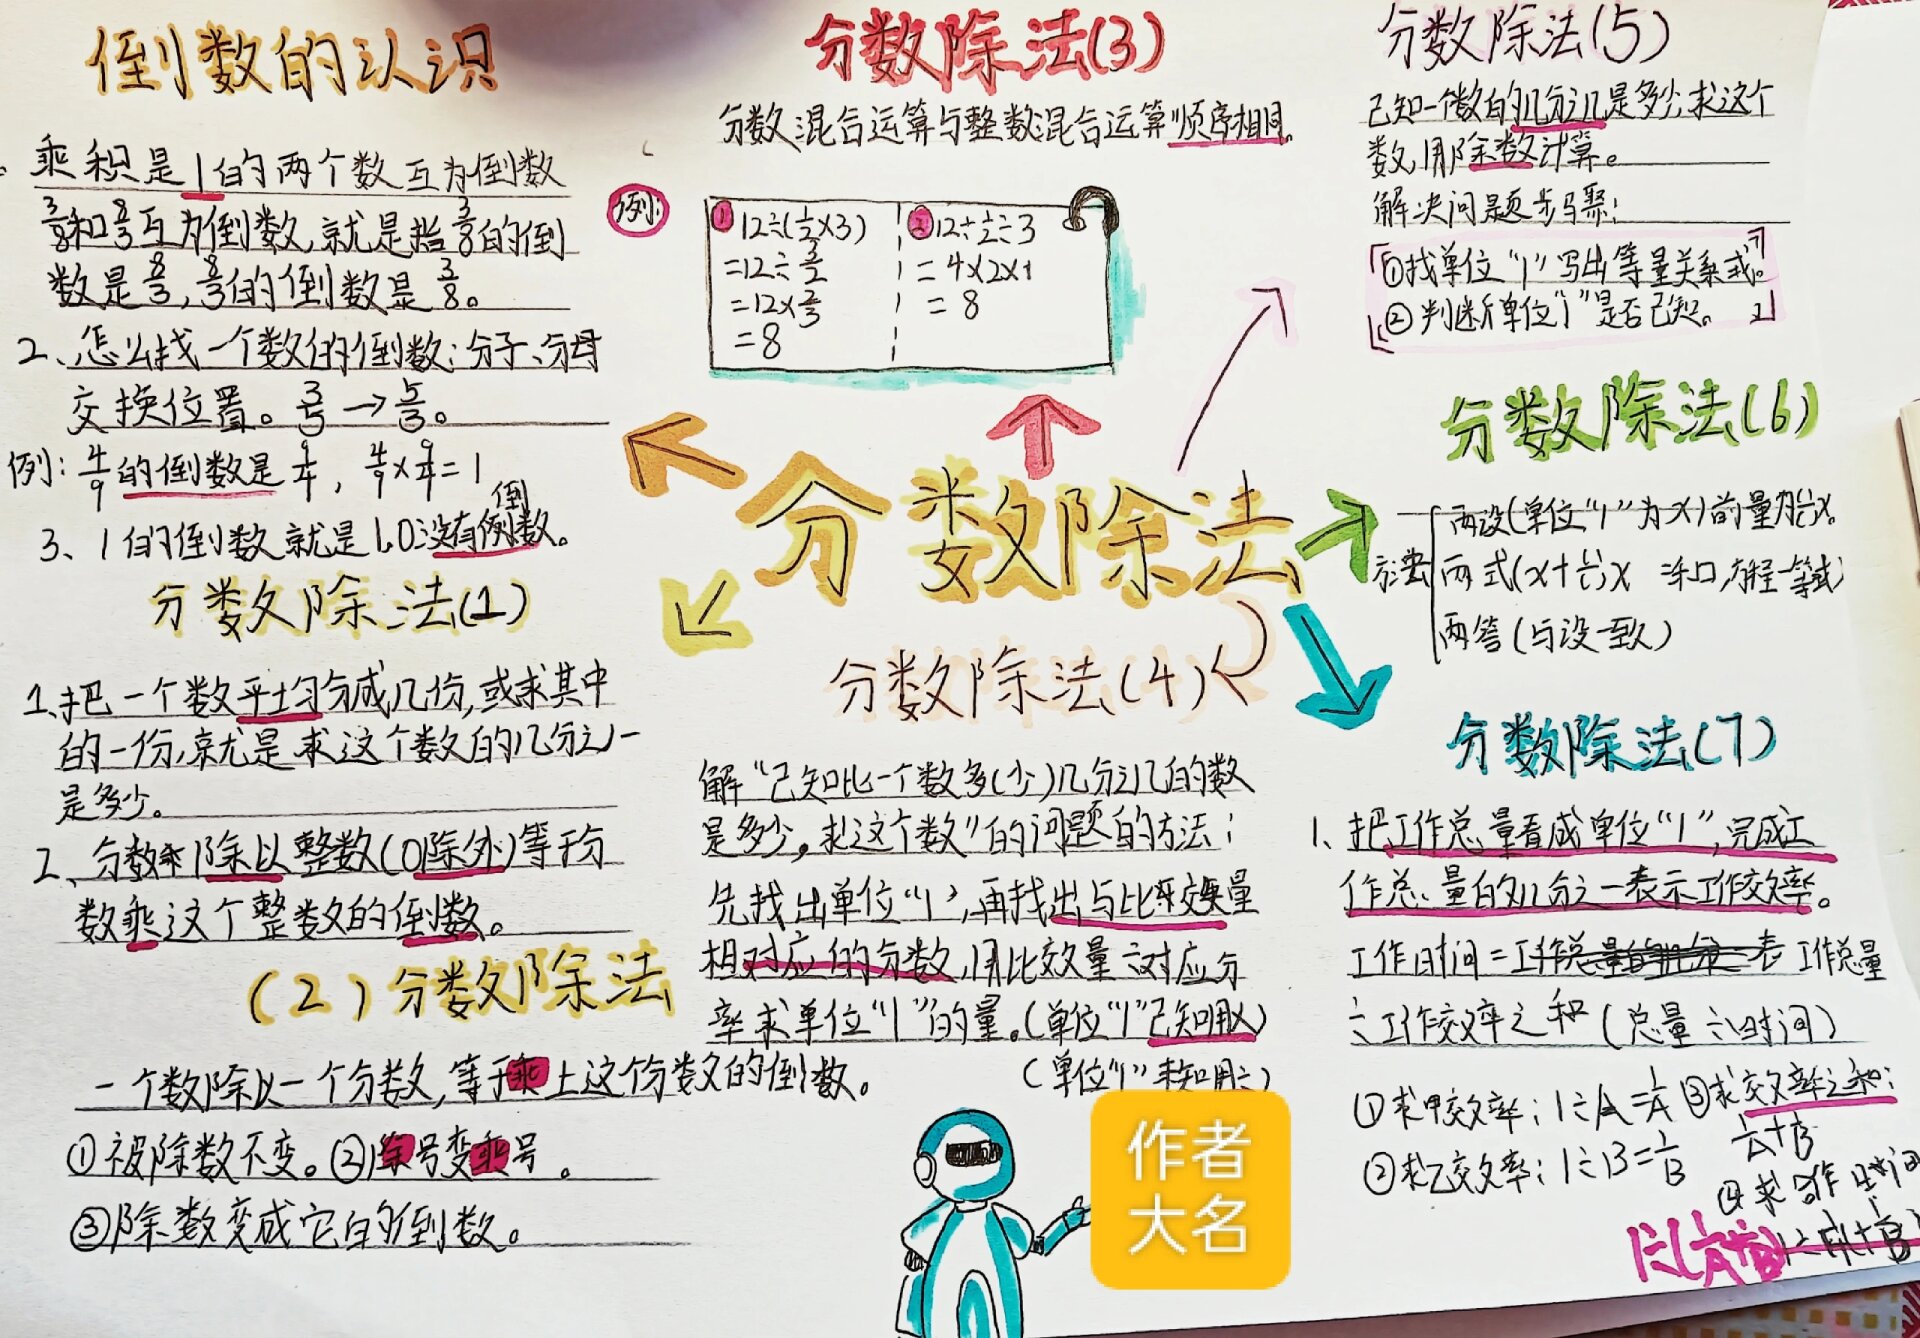 倒数的认识
乘积是1的两个数互为倒数
3/8和8/3互为倒数,就是指3/8的倒
数是8/3,8/3的倒数是3/8。
2、怎么找一个数的倒数:分子、分母
交换位置。3/5→5/3。
例:4/9的倒数是9/4,4/9×9/4=1
倒
3、1的倒数就是1.0没有例数。
分数除法(1)
1、把一个数平均分成几份,或求其中
的一份,就是求这个数的几分之一
是多少。
2、分数除以整数(0除外)等于分
数乘这个整数的倒数。
(2)分数除法
一个数除以一个分数,等于乘上这个分数的倒数。
①被除数不变。②除号变乘号。
③除数变成它的倒数。
分数除法(3)
分数混合运算与整数混合运算顺序相同。
例:
① 12÷(1/2×3)
=12÷3/2
=12×2/3
=8
② 12÷1/2÷3
=4×2×1
=8
分数除法
分数除法(4)
解“已知比一个数多(少)几分之几的数
是多少,求这个数”的问题的方法:
先找出单位“1”,再找出与比较量
相对应的分数,用比较量÷对应分
率求单位“1”的量。(单位“1”已知用×)
(单位“1”未知用÷)
分数除法(5)
已知一个数的几分之几是多少,求这个
数,用除数计算。
解决问题步骤:
①找单位“1”写出等量关系式。
②判断单位“1”是否已知。
分数除法(6)
方法
两设(单位“1”为x)
两式(x+
两答(与设一致)
分数除法(7)
1、把工作总量看成单位“1”,完成工
作总量的几分之一表示工作效率。
工作时间=工作总量
÷工作效率之和(总量÷时间)
①求甲效率:1÷A=1/A ③求效率之和:
1/A+1/B
②求乙效率:1÷B=1/B
④求
1÷(1/A+1/B)
作者
大名